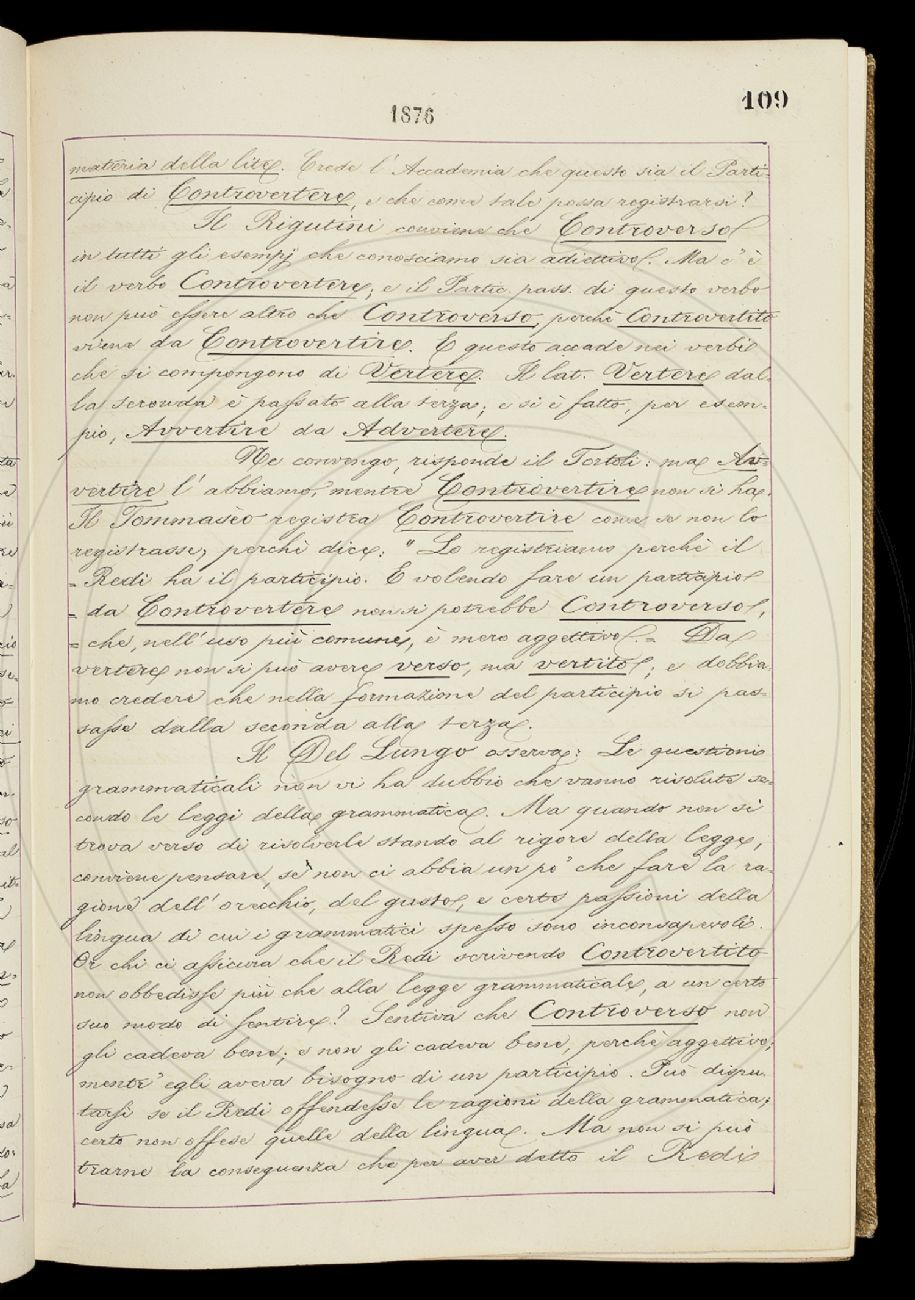 1876
109
materia della lite. Crede l'Accademia che questo sia il Parti=
cipio di Controvertere, e che come tale possa registrarsi?
Il Rigutini conviene che Controverso
in tutti gli esempj che conosciamo sia adiettivo. Ma c'è
il verbo Controvertere; e il Partic. pass. di questo verbo
non può essere altro che Controverso, perchè Controvertito
viene da Controvertire. E questo accade nei verbi
che si compongono di Vertere. Il lat. Vertere dal-
la seconda è passato alla terza; e si è fatto, per esem-
pio, Avvertire da Advertere.
Ne convengo, risponde il Tortoli: ma Av=
vertire l'abbiamo, mentre Controvertire non si ha.
Il Tommasèo registra Controvertire come se non lo
registrasse, perchè dice: "Lo registriamo perchè il
= Redi ha il participio. E volendo fare un participio
= da Controvertere non si potrebbe Controverso,
= che, nell'uso più comune, è mero aggettivo. = Da
vertere non si può avere verso, ma vertito; e dobbia
mo credere che nella formazione del participio si pas=
sasse dalla seconda alla terza.
Il Del Lungo osserva: Le questioni
grammaticali non vi ha dubbio che vanno risolute se=
condo le leggi della grammatica. Ma quando non si
trova verso di risolverle stando al rigore della legge,
conviene pensare, se non ci abbia un po' che fare la ra=
gione dell'orecchio, del gusto, e certe passioni della
lingua di cui i grammatici spesso sono inconsapevoli.
Or chi ci assicura che il Redi scrivendo Controvertito
non obbedisse più che alla legge grammaticale, a un certo
suo modo di sentire? Sentiva che Controverso non
gli cadeva bene; e non gli cadeva bene, perchè aggettivo;
mentr'egli aveva bisogno di un participio. Può dispu
tarsi se il Redi offendesse le ragioni della grammatica;
certo non offese quelle della lingua. Ma non si può
trarne la conseguenza che per aver detto il Redi